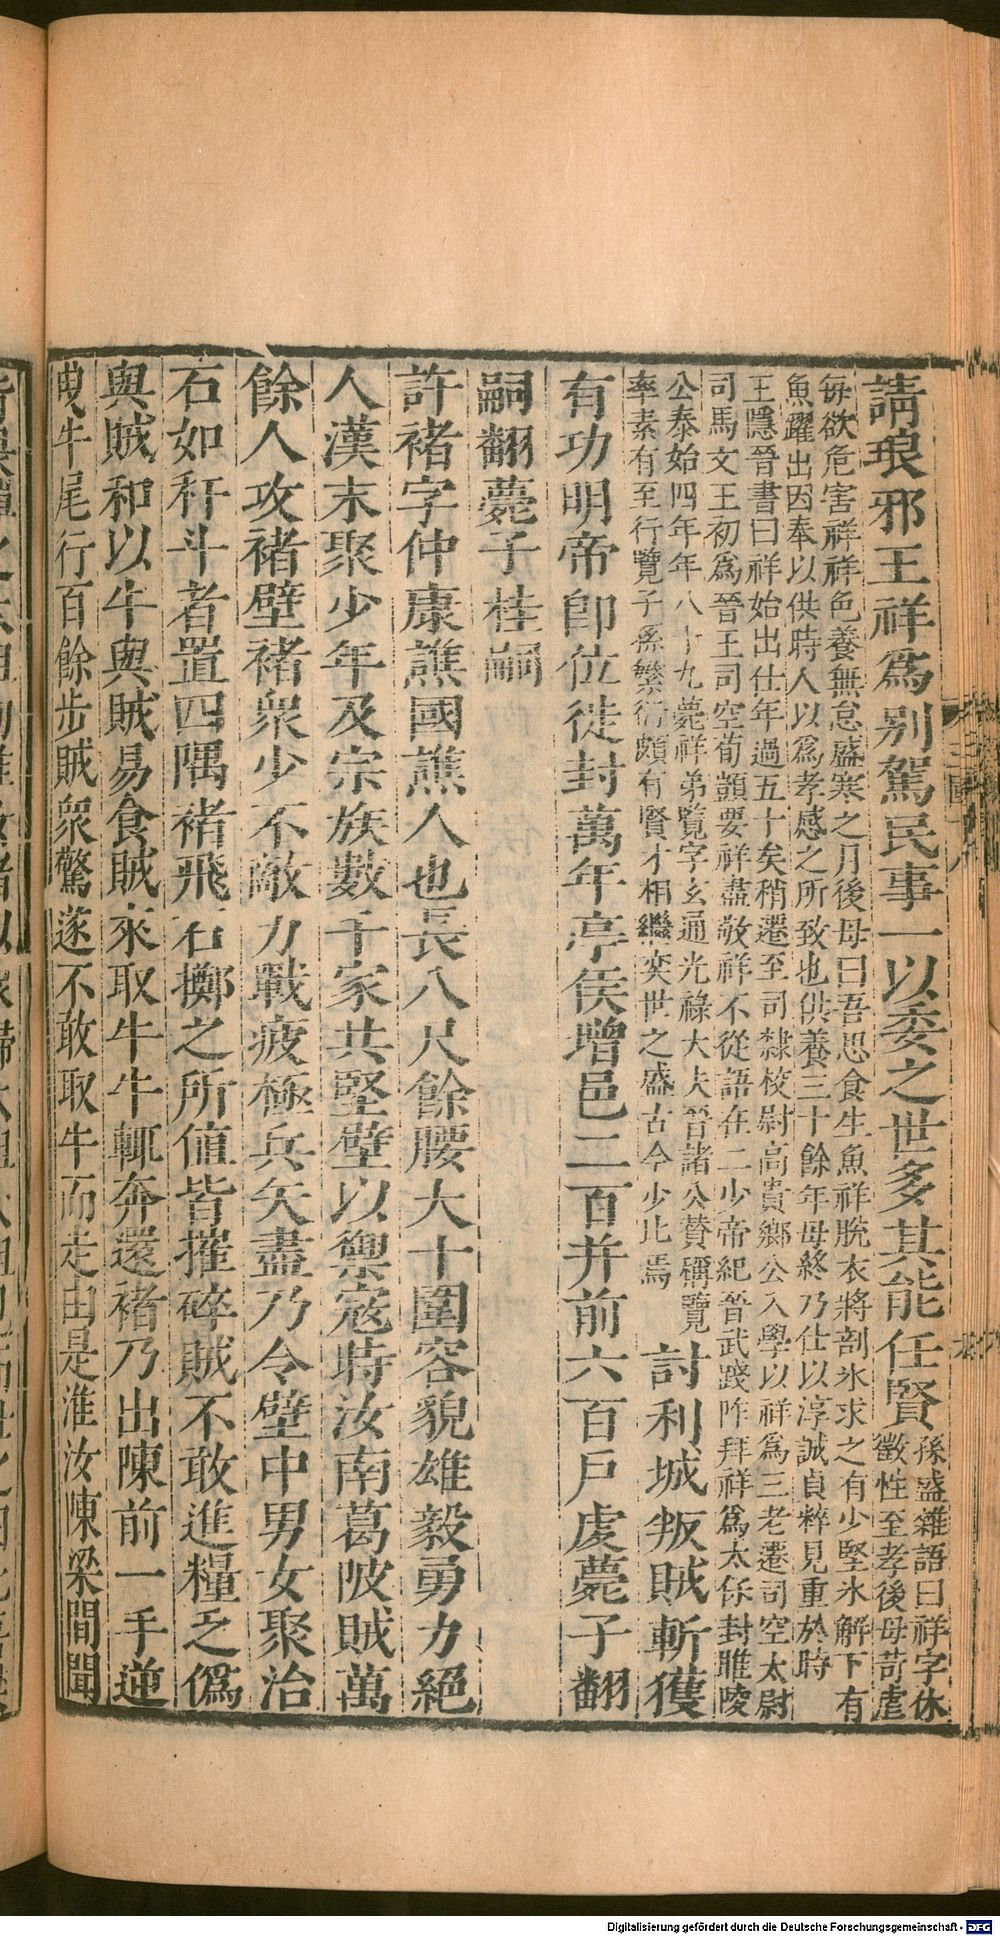 請琅邪王祥爲别駕民事一以委之世多其能任賢孫盛雜語曰祥字休
徵性至孝後母苛虐
每欲危害祥祥色養無怠盛寒之月後母曰吾思食生魚祥脱衣將剖氷求之有少堅氷解下有
魚躍出因奉以供時人以爲孝感之所致也供養三十餘年母終乃仕以淳誠貞粹見重於時
王隱晉書曰祥始出仕年過五十矣稍遷至司隸校尉高貴鄉公入學以祥爲三老遷司空太尉
司馬文王初爲晉王司空荀顗要祥盡敬祥不從語在二少帝紀晉武踐阼拜祥爲太保封雎陵
公泰始四年年八十九薨祥弟覽字玄通光祿大夫晉諸公贊稱覽
率素有至行覽子孫繁衍頗有賢才相繼奕世之盛古今少比焉
討利城叛賊斬獲
有功明帝卽位徙封萬年亭侯增邑二百并前六百戸虔薨子翻
嗣翻薨子桂嗣
許褚字仲康譙國譙人也長八尺餘腰大十圍容貌雄毅勇力絕
人漢末聚少年及宗族數千家共堅壁以禦寇時汝南葛陂賊萬
餘人攻褚壁褚衆少不敵力戰疲極兵矢盡乃令壁中男女聚治
石如秆斗者置四隅褚飛石擲之所值皆摧碎賊不敢進糧乏僞
與賊和以牛與賊易食賊來取牛牛輒奔還褚乃出陳前一手逆
曳牛尾行百餘步賊衆驚遂不敢取牛而走由是淮汝陳梁間聞
Digitalisierung gefördert durch die Deutsche Forschungsgemeinschaft - DFG